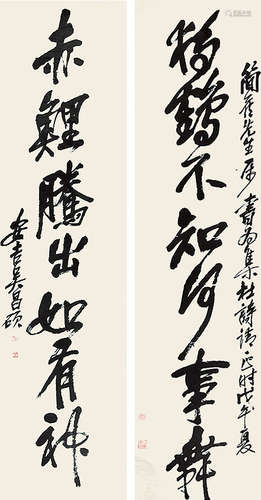 獨鶴不知何事舞
簡盦先生屬書為集杜詩請正時戊午夏
赤鯉騰出如有神
安吉吳昌碩